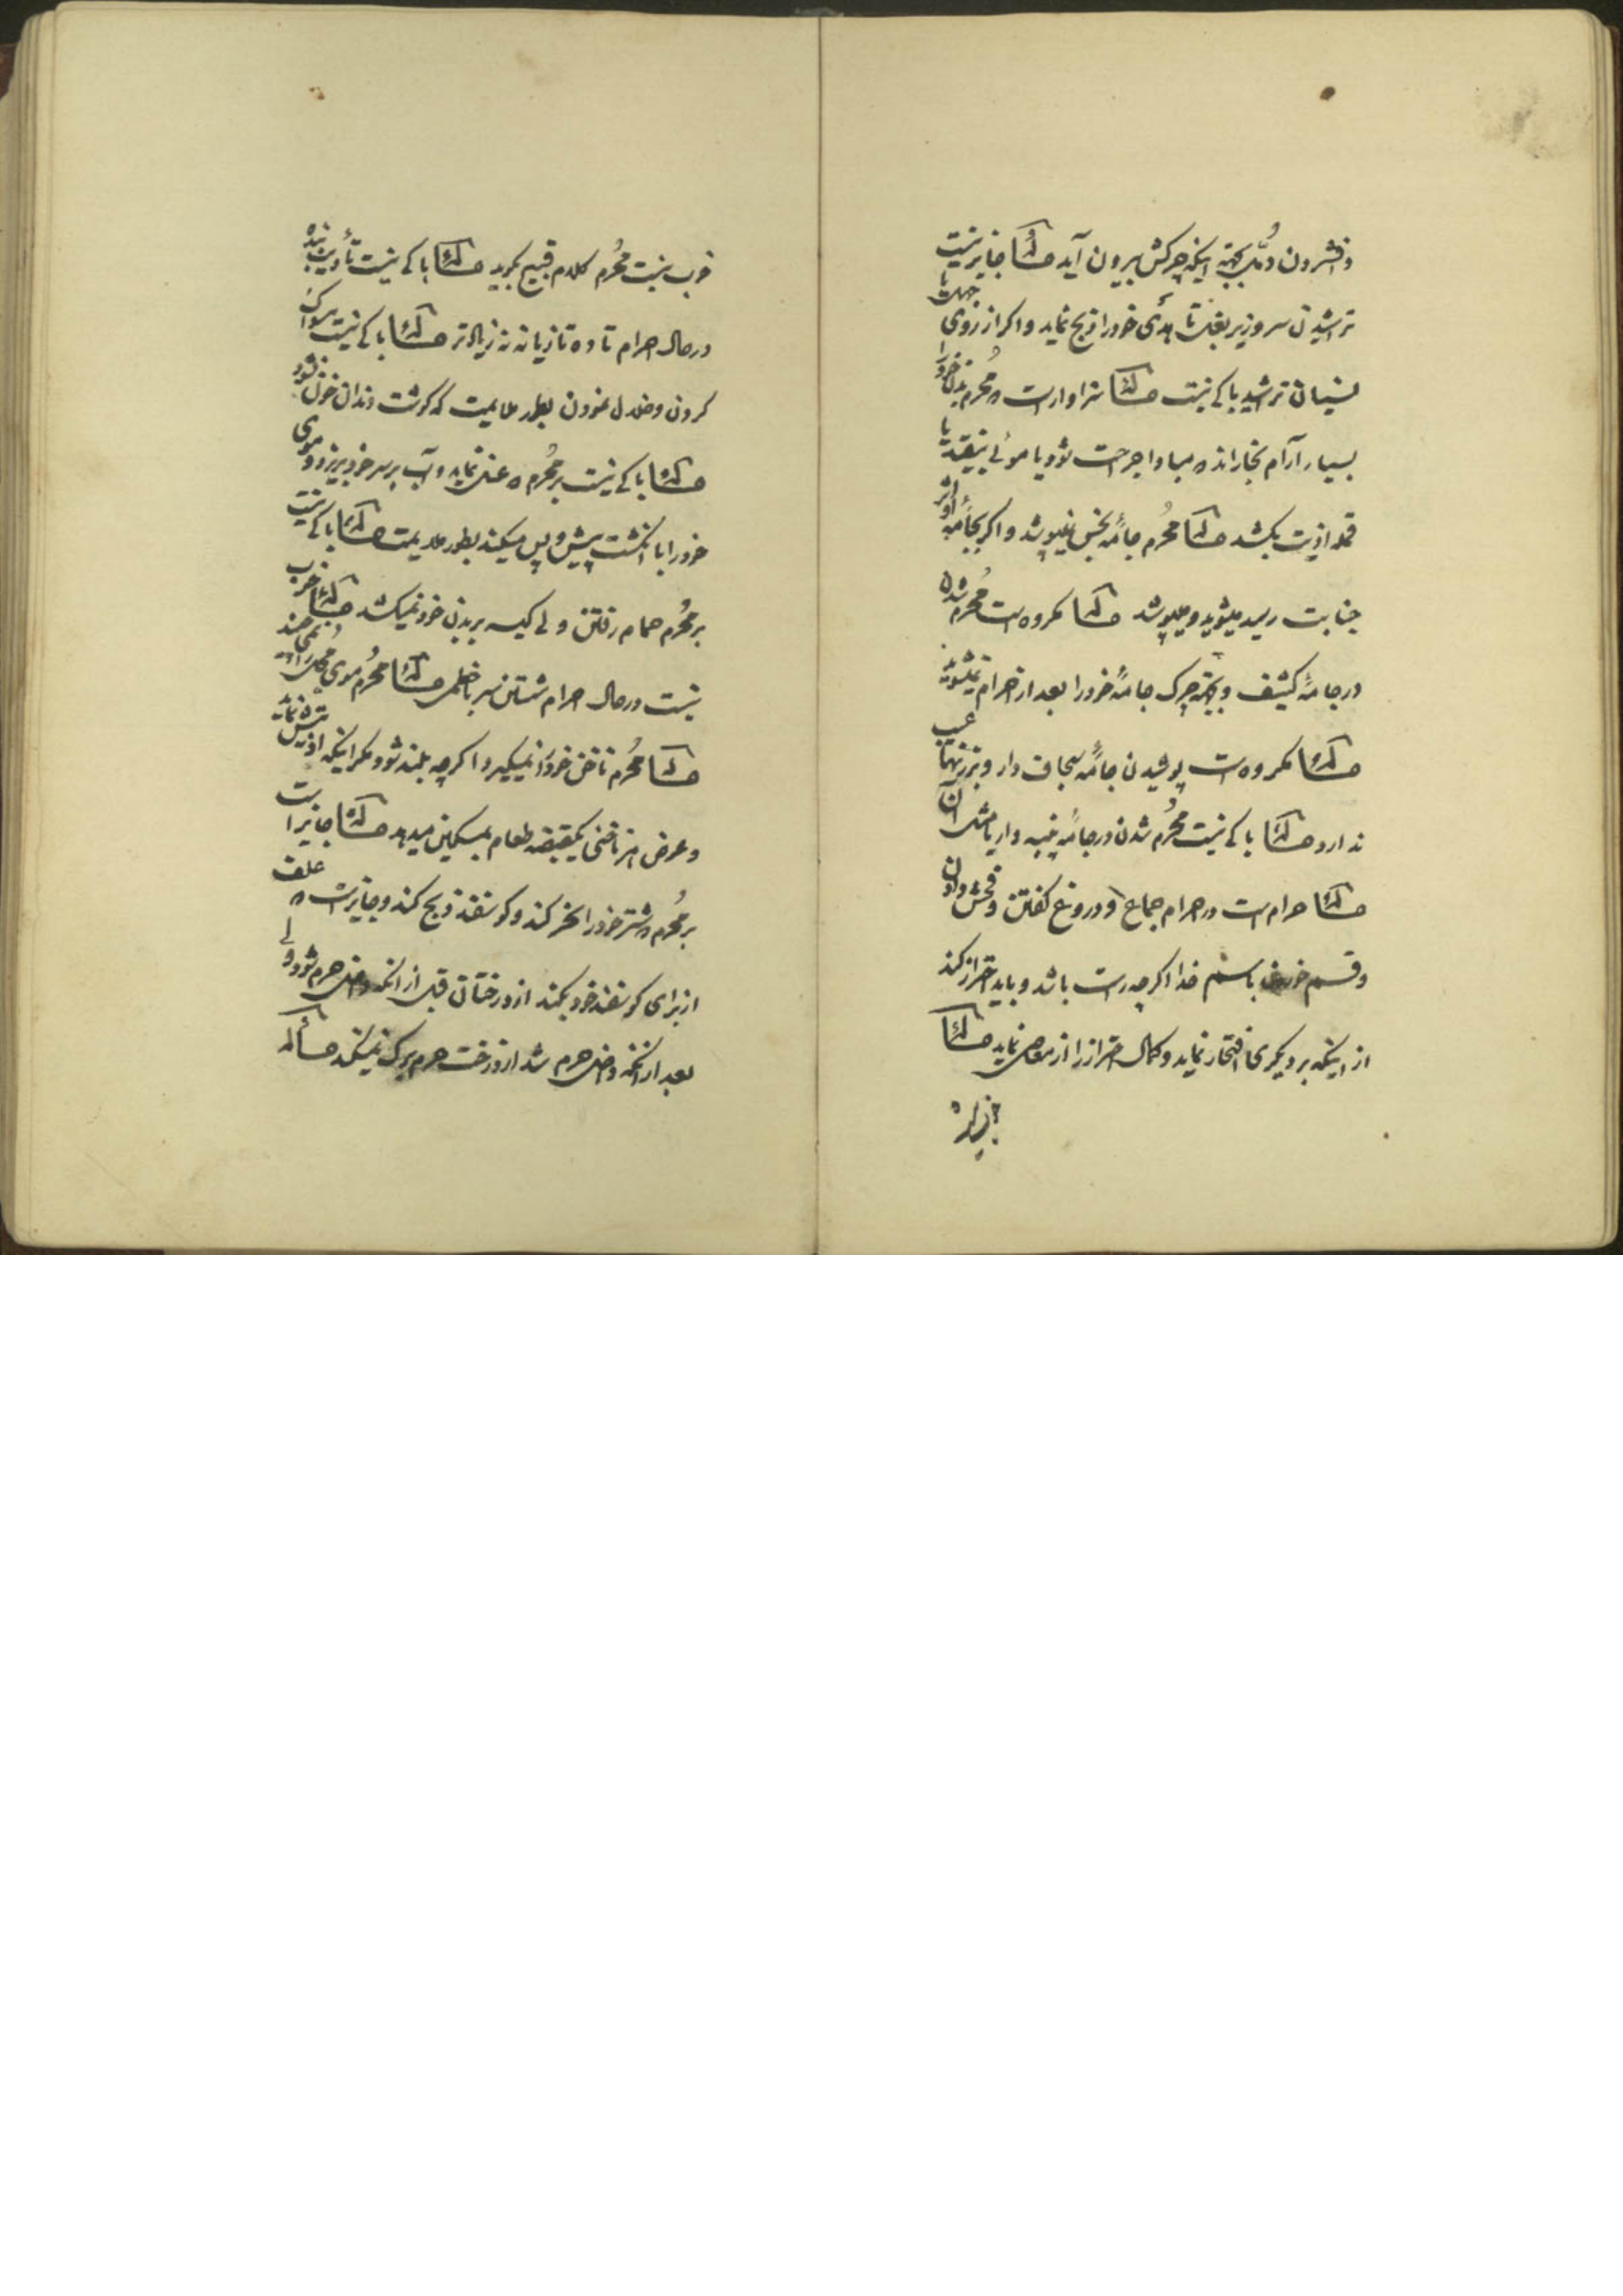 و فشردن دُمّل بجهة اینکه چرکش بیرون آید مسئله جایز نیست
تراشیدن سر و زیر بغل تا هدی خود را ذبح نماید و اگر از روی جهالت یا
نسیان تراشید باکی نیست مسئله سزاوار است محرم بدن خود را
بسیار آرام بخاراند مبادا جراحت شود یا موئی بیفتد یا
قمله اذیت بکشد مسئله محُرم جامهٔ نجس نمیپوشد و اگر بجامهٔ او اثر
جنابت رسید میشوید و میپوشد مسئله مکروه است محُرم شدن
در جامهٔ کثیف و بجهة چرک جامهٔ خود را بعد از احرام نمیشوید
مسئله مکروه است پوشیدن جامهٔ سجاف دار و بر زنها عیب
ندارد مسئله باکی نیست محُرم شدن در جامهٔ پنبه دار یا مثل آن
مسئله حرام است در احرام جماع و دروغ گفتن و فحش دادن
و قسم خوردن باسم خدا اگر چه راست باشد و باید احتراز کند
از اینکه بر دیگری افتخار نماید و کمال احتراز را از معاصی نماید مسئله
خوب نیست محُرم کلام قبیح بگوید مسئله باکی نیست تأدیب بنده
در حال احرام تا ده تازیانه نه زیادتر مسئله باکی نیست مسواک
کردن و خلال نمودن بطور ملایمت که گوشت دندان خون نشود
مسئله باکی نیست بر محُرم که غسل نماید و آب بر سر خود بریزد و موی
خود را با انگشت پیش و پس میکند بطور ملایمت مسئله باکی نیست
بر محُرم حمام رفتن ولی کیسه بر بدن خود نمیکشد مسئله خوب
نیست در حال احرام شستن سر با خطمی مسئله محُرم موی محل را نمی چیند
مسئله محُرم ناخن خود را نمیگیرد اگر چه بلند شود مگر اینکه اذیتش نماید
و عوض هر ناخنی یکقبضه طعام بمسکین میدهد مسئله جایز است
بر محُرم شتر خود را نحر کند و گوسفند ذبح کند و جایز است علف
از برای گوسفند خود بکند از درختان قبل از آنکه داخل حرم شود ولی
بعد از آنکه داخل حرم شد از درخت حرم برگ نمیکند مسأله